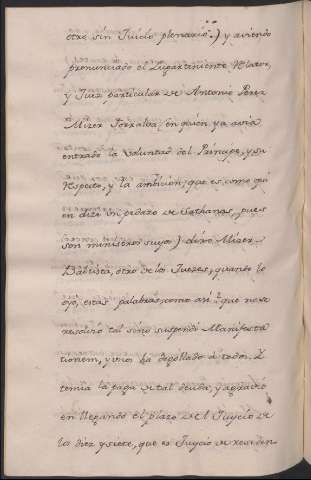 otro sin Juicio plenario.) y aviendo
pronunciado el Lugarteniente Relator,
y Juez particular de Antonio Perez
Mizer Torralva (en quien ya avia
entrado la voluntad del Principe, y su
respeto, y la ambicion, que es como qui
en dize un pedazo de Sathanas, pues
son ministros suyos) dixo Mizer
Batista, otro de los Juezes, quando lo
oyó, estas palabras, como asi: que no se
resolvio tal sino suspendi Manifesta
tionem, y vos ha degollado à todos. Y
temia la paga de tal deuda, y agravio
en llegando el plazo de el Juycio de
la diez y siete, que es Juycio de residen